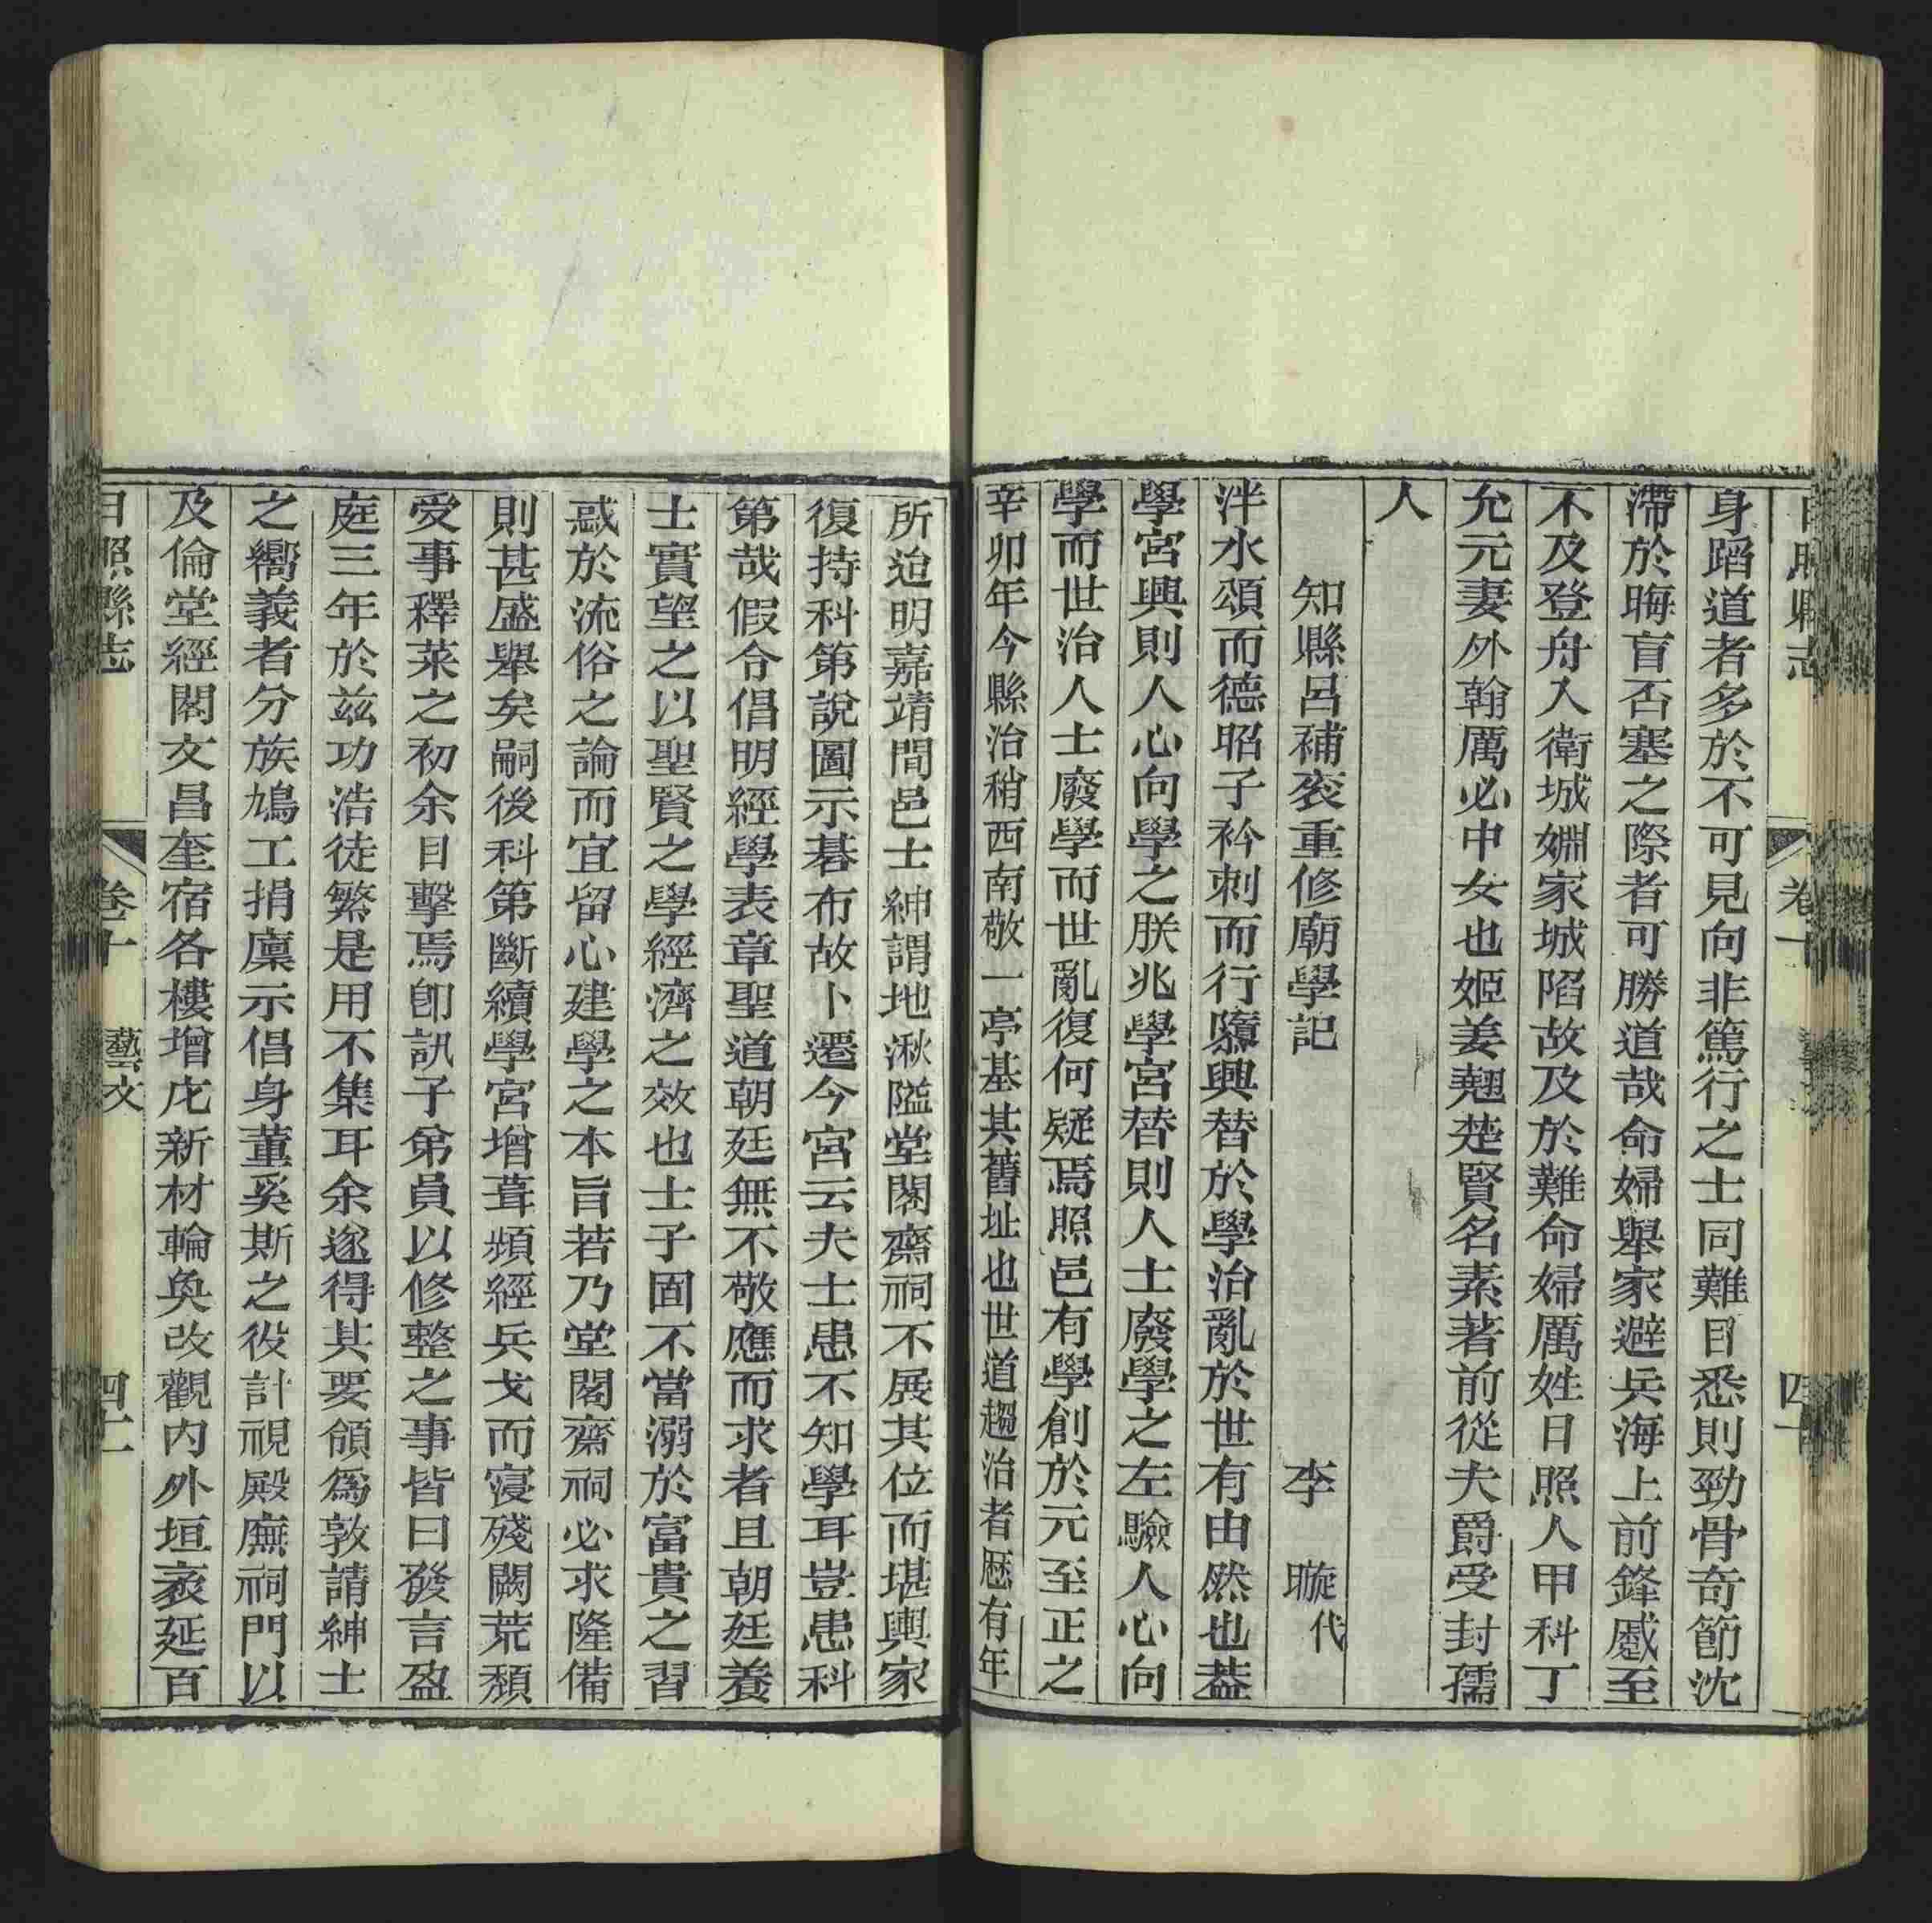 日照縣志 卷十 四十一
身蹈道者多於不可見向非篤行之士同難目悉則勁骨奇節沈
滯於晦盲否塞之際者可勝道哉命婦舉家避兵海上前鋒蹙至
不及登舟入衛城嫺家城陷故及於難命婦厲姓日照人甲科丁
允元妻外翰厲必中女也姬姜翹楚賢名素著前從夫爵受封孺
人
知縣呂補袞重修廟學記 李 㻽代
泮水頌而德昭子衿刺而行隳興替於學治亂於世有由然也葢
學宮興則人心向學之朕兆學宮替則人士廢學之左驗人心向
學而世治人士廢學而世亂復何疑焉照邑有學創於元至正之
辛卯年今縣治稍西南敬一亭基其舊址也世道趨治者歷有年
所迨明嘉靖間邑士紳謂地湫隘堂閣齋祠不展其位而堪輿家
復持科第說圖示碁布故卜遷今宮云夫士患不知學耳豈患科
第哉假令倡明經學表章聖道朝廷無不敬應而求者且朝廷養
士實望之以聖賢之學經濟之效也士子固不當溺於富貴之習
惑於流俗之論而宜留心建學之本旨若乃堂閣齋祠必求隆備
則甚盛舉矣嗣後科第斷續學宮增葺頻經兵戈而寖殘闕荒頹
受事釋菜之初余目擊焉卽訊子弟員以修整之事皆曰發言盈
庭三年於兹功浩徒繁是用不集耳余遂得其要領爲敦請紳士
之嚮義者分族鳩工捐廩示倡身董奚斯之役計視殿廡祠門以
及倫堂經閣文昌奎宿各樓增庀新材輪奐改觀內外垣袤延百
日照縣志 卷十 藝文 四十一